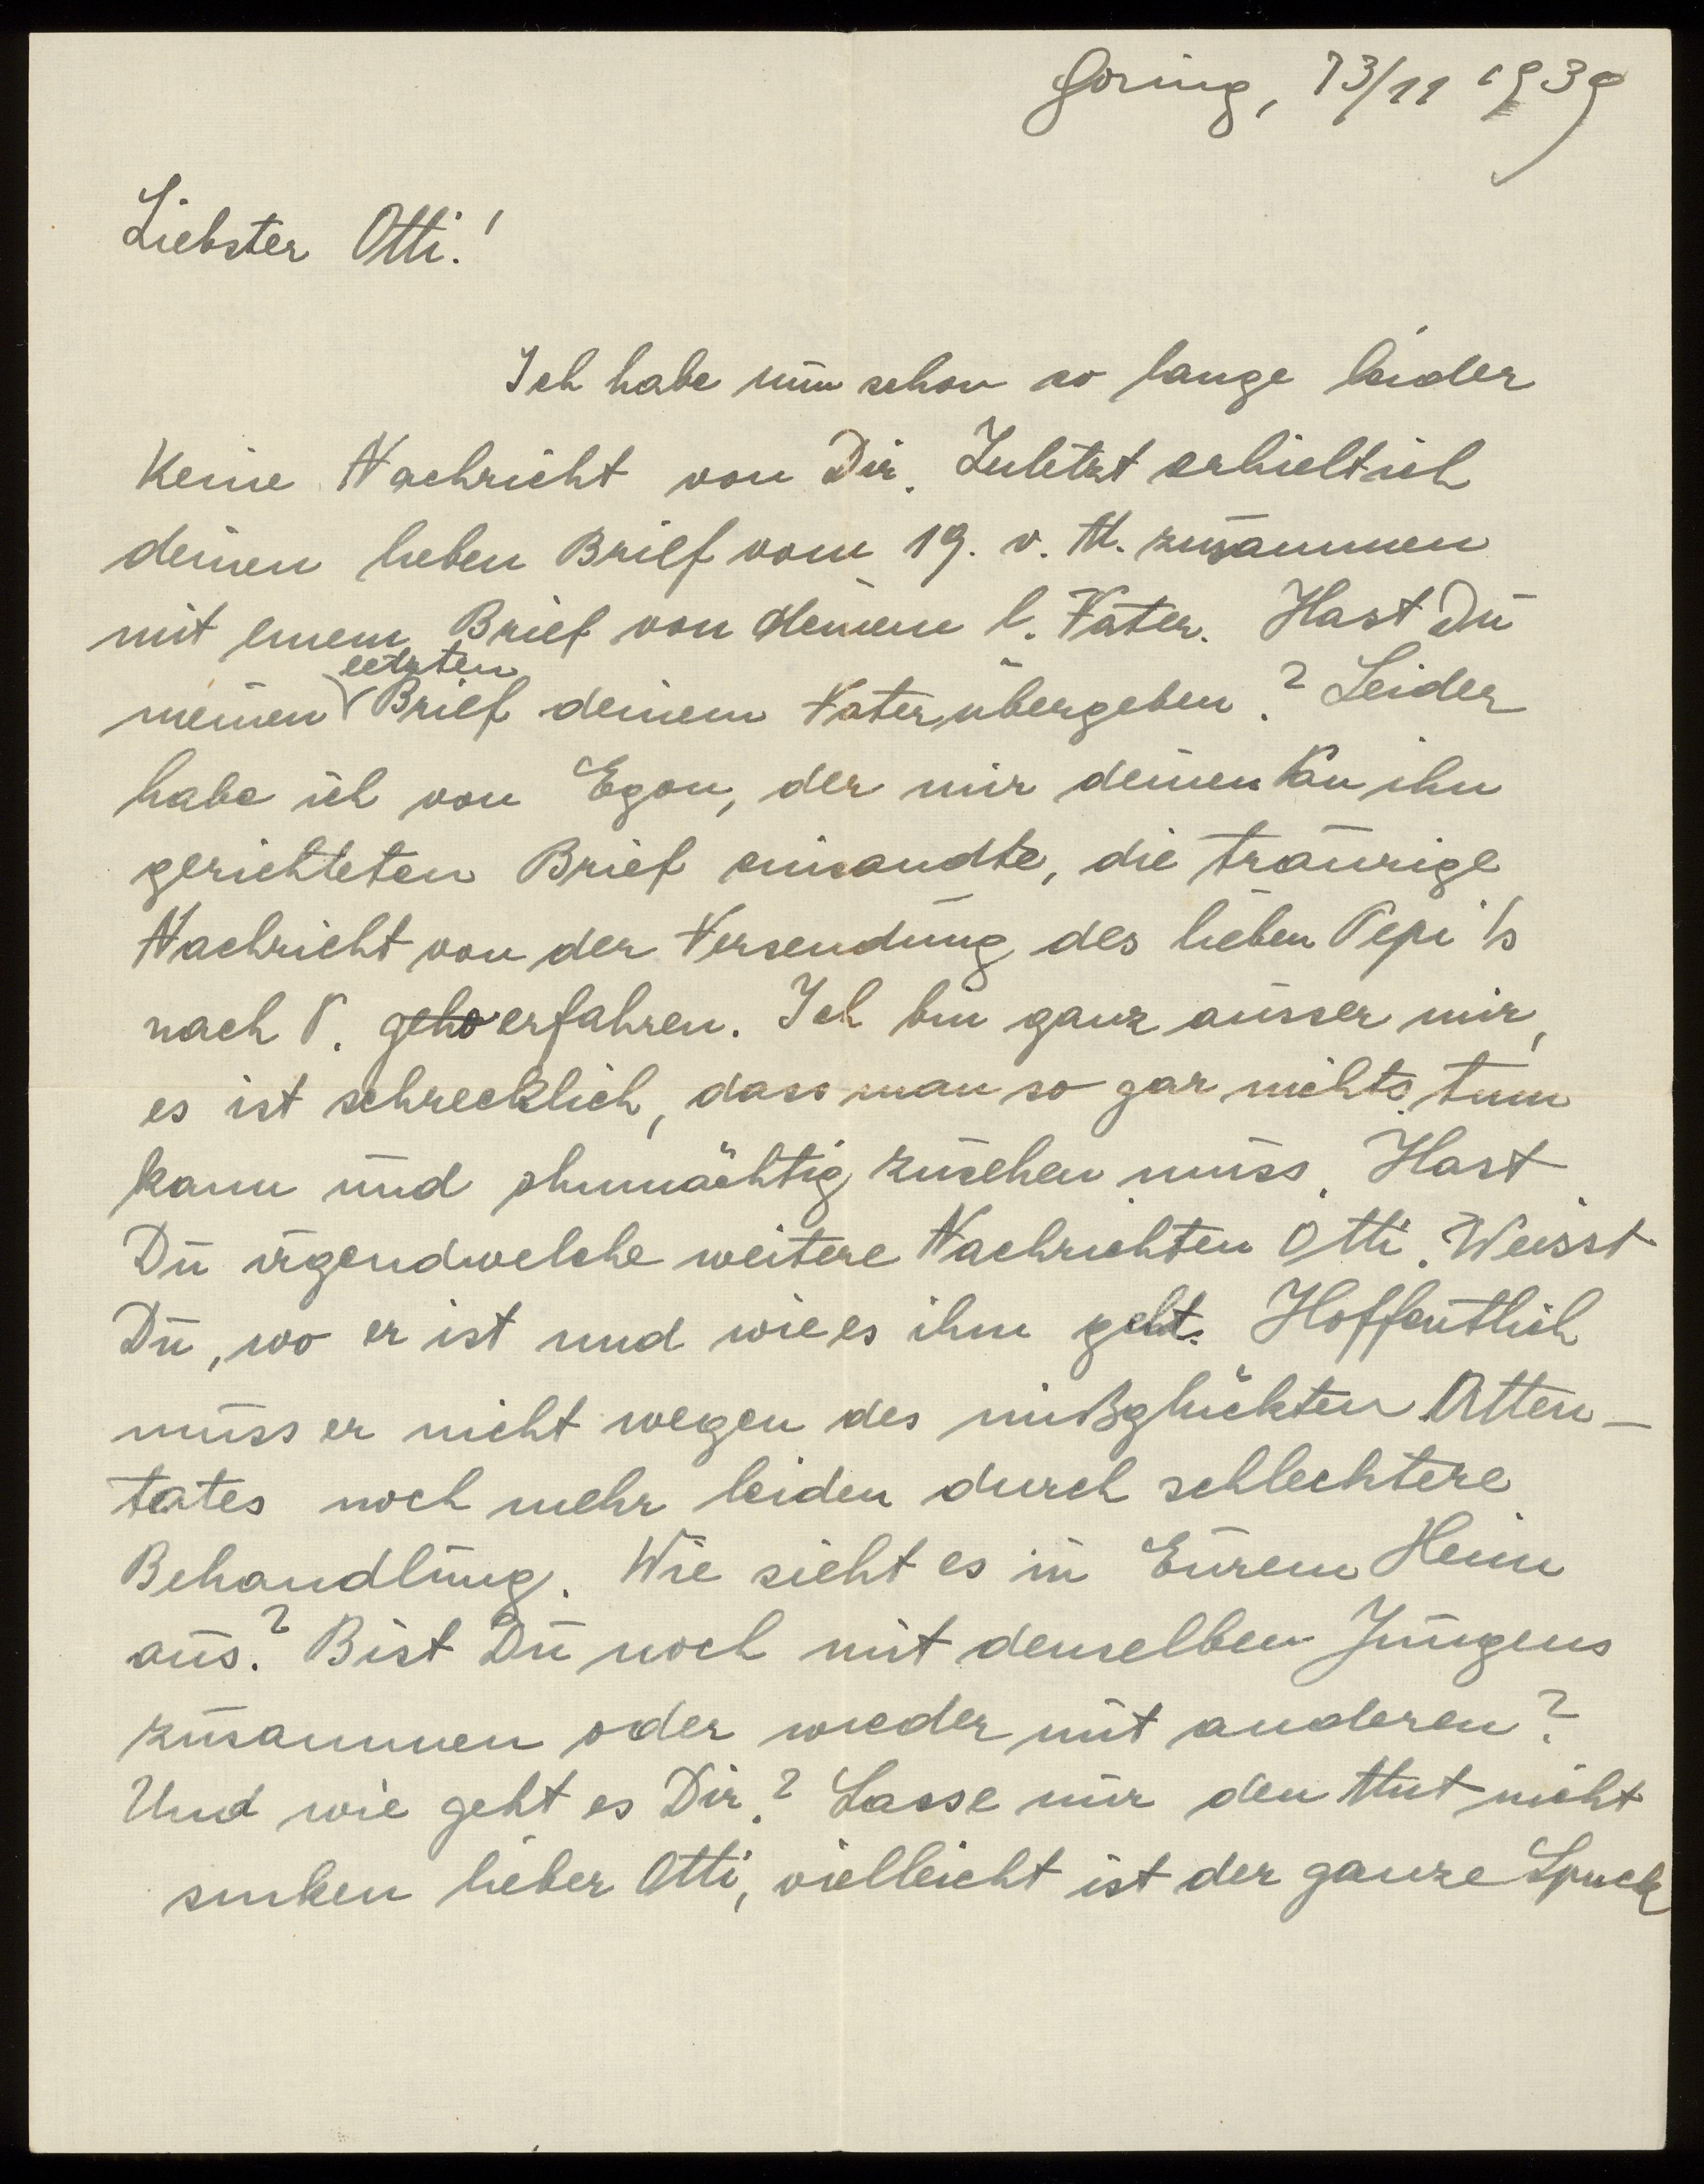 Goring, 13/11 1939
Liebster Otti!
Ich habe nun schon so lange leider
keine Nachricht von Dir. Zuletzt erhielt ich
deinen lieben Brief vom 19. v. M. zusammen
mit einem Brief von deinem l. Vater. Hast Du
letzten
meinen Brief deinem Vater übergeben? Leider
habe ich von Egon, der mir deinen an ihn
gerichteten Brief einsandte, die traurige
Nachricht von der Versendung des lieben Pepi's
nach P. geho erfahren. Ich bin ganz ausser mir,
es ist schrecklich, dass man so gar nichts tun
kann und ohnmächtig zusehen muss. Hast
Du irgendwelche weitere Nachrichten Otti. Weisst
Du, wo er ist und wie es ihm geht. Hoffentlich
muss er nicht wegen des mißglückten Atten-
tates noch mehr leiden durch schlechtere
Behandlung. Wie sieht es in Eurem Heim
aus? Bist Du noch mit denselben Jungens
zusammen oder wieder mit anderen?
Und wie geht es Dir? Lasse nur den Mut nicht
sinken lieber Otti, vielleicht ist der ganze Spuck